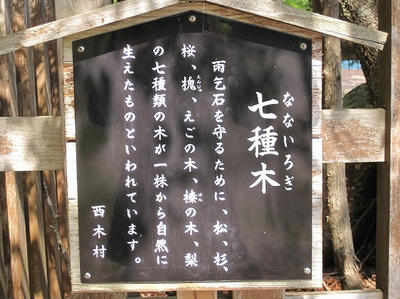 七種木
なないろぎ
雨乞石を守るために、松、杉、
桜、槐、えごの木、榛の木、梨
えんじゅ
はん
の七種類の木が一株から自然に
生えたものといわれています。
西木村